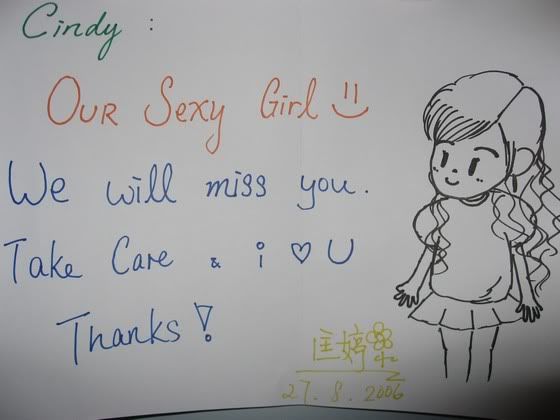 Cindy :
Our Sexy Girl
We will miss you.
Take Care & i ♡ U
Thanks !
匡婷
27. 8. 2006